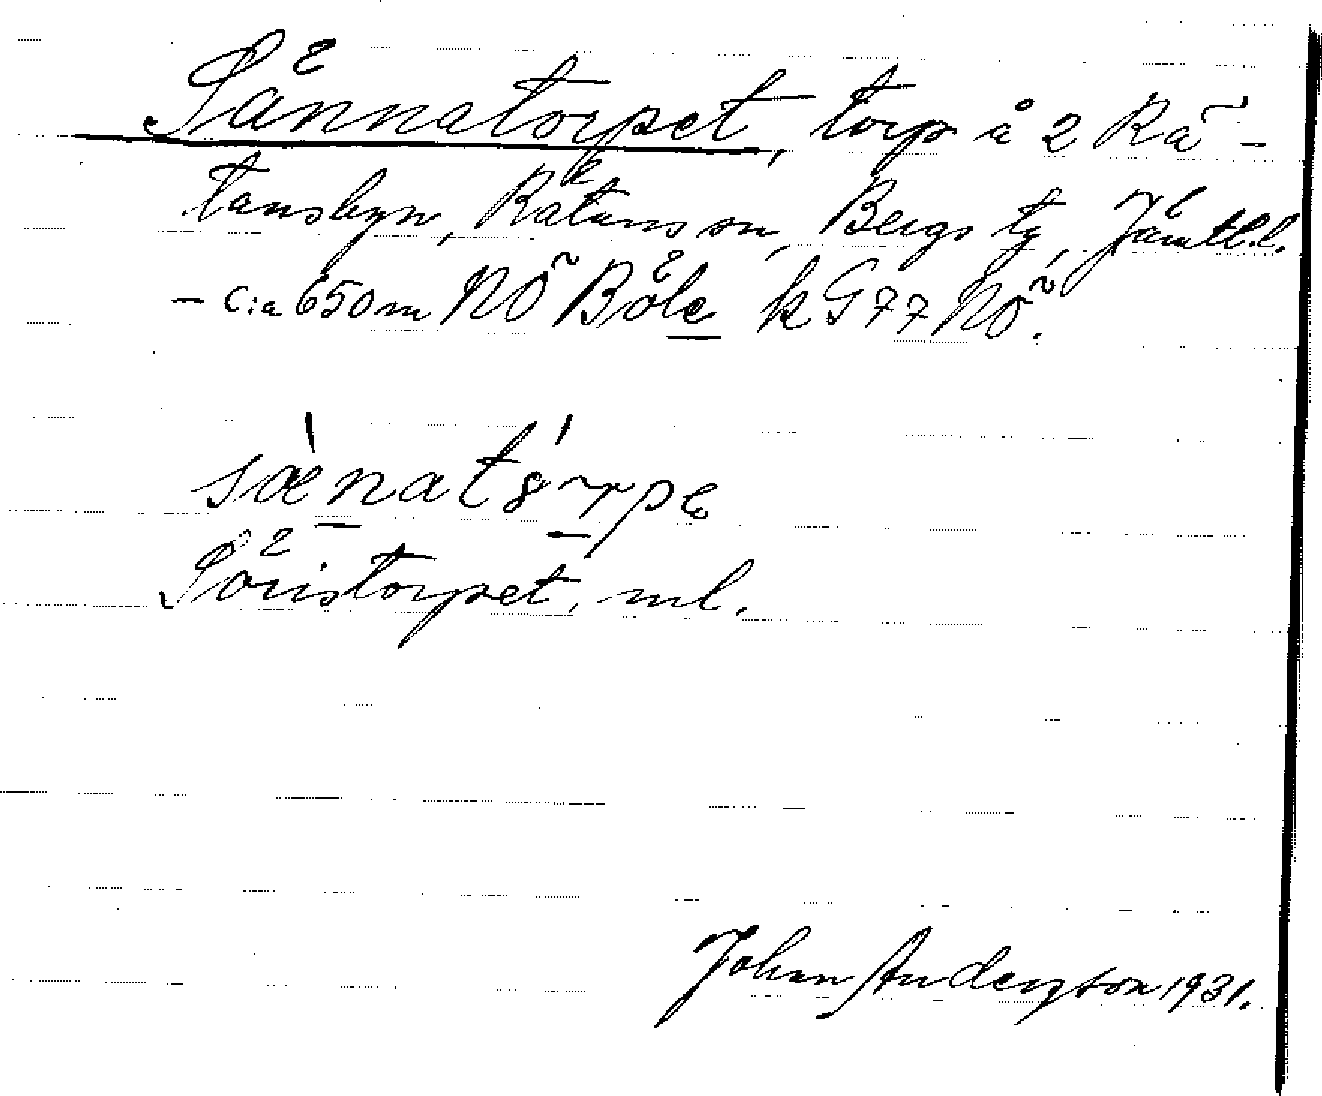 Sännatorpet, torp å 2 Rä-
tansbyn, Rätans sn, Bergs tg, Jämtl.l.
– c:a 650 m NÖ Böle k G 77 NÖ.
sænat8rpe
Söristorpet, ml.
Johan Andersson 1931.